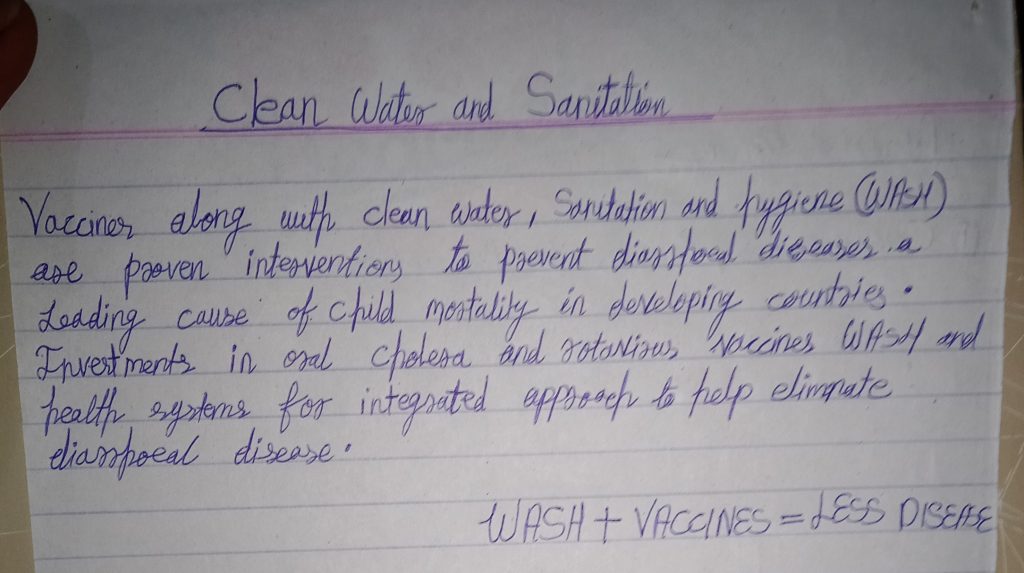 Clean Water and Sanitation
Vaccines along with clean water, Sanitation and hygiene (WASH)
are proven interventions to prevent diarrhoeal diseases. a
Leading cause of child mortality in developing countries.
Investments in oral cholera and rotavirus vaccines WASH and
health systems for integrated approach to help eliminate
diarrhoeal disease.
WASH + VACCINES = LESS DISEASE